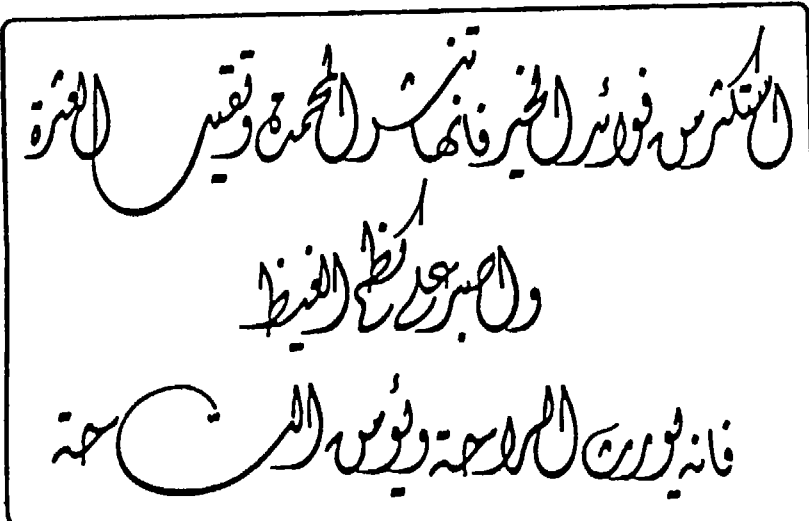 استكثر من فوائد الخير فانها تنشر المحمدة وتقيل العثرة
واصبر على كظم الغيظ
فانه يورث الراحة ويؤمن الساحة